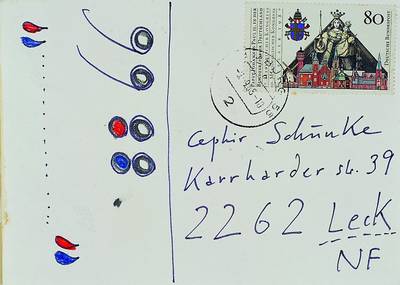 80
DEUTSCHE BUNDESPOST
55
2
Cephir Schünke
Karrharder str. 39
2262 Leck
NF